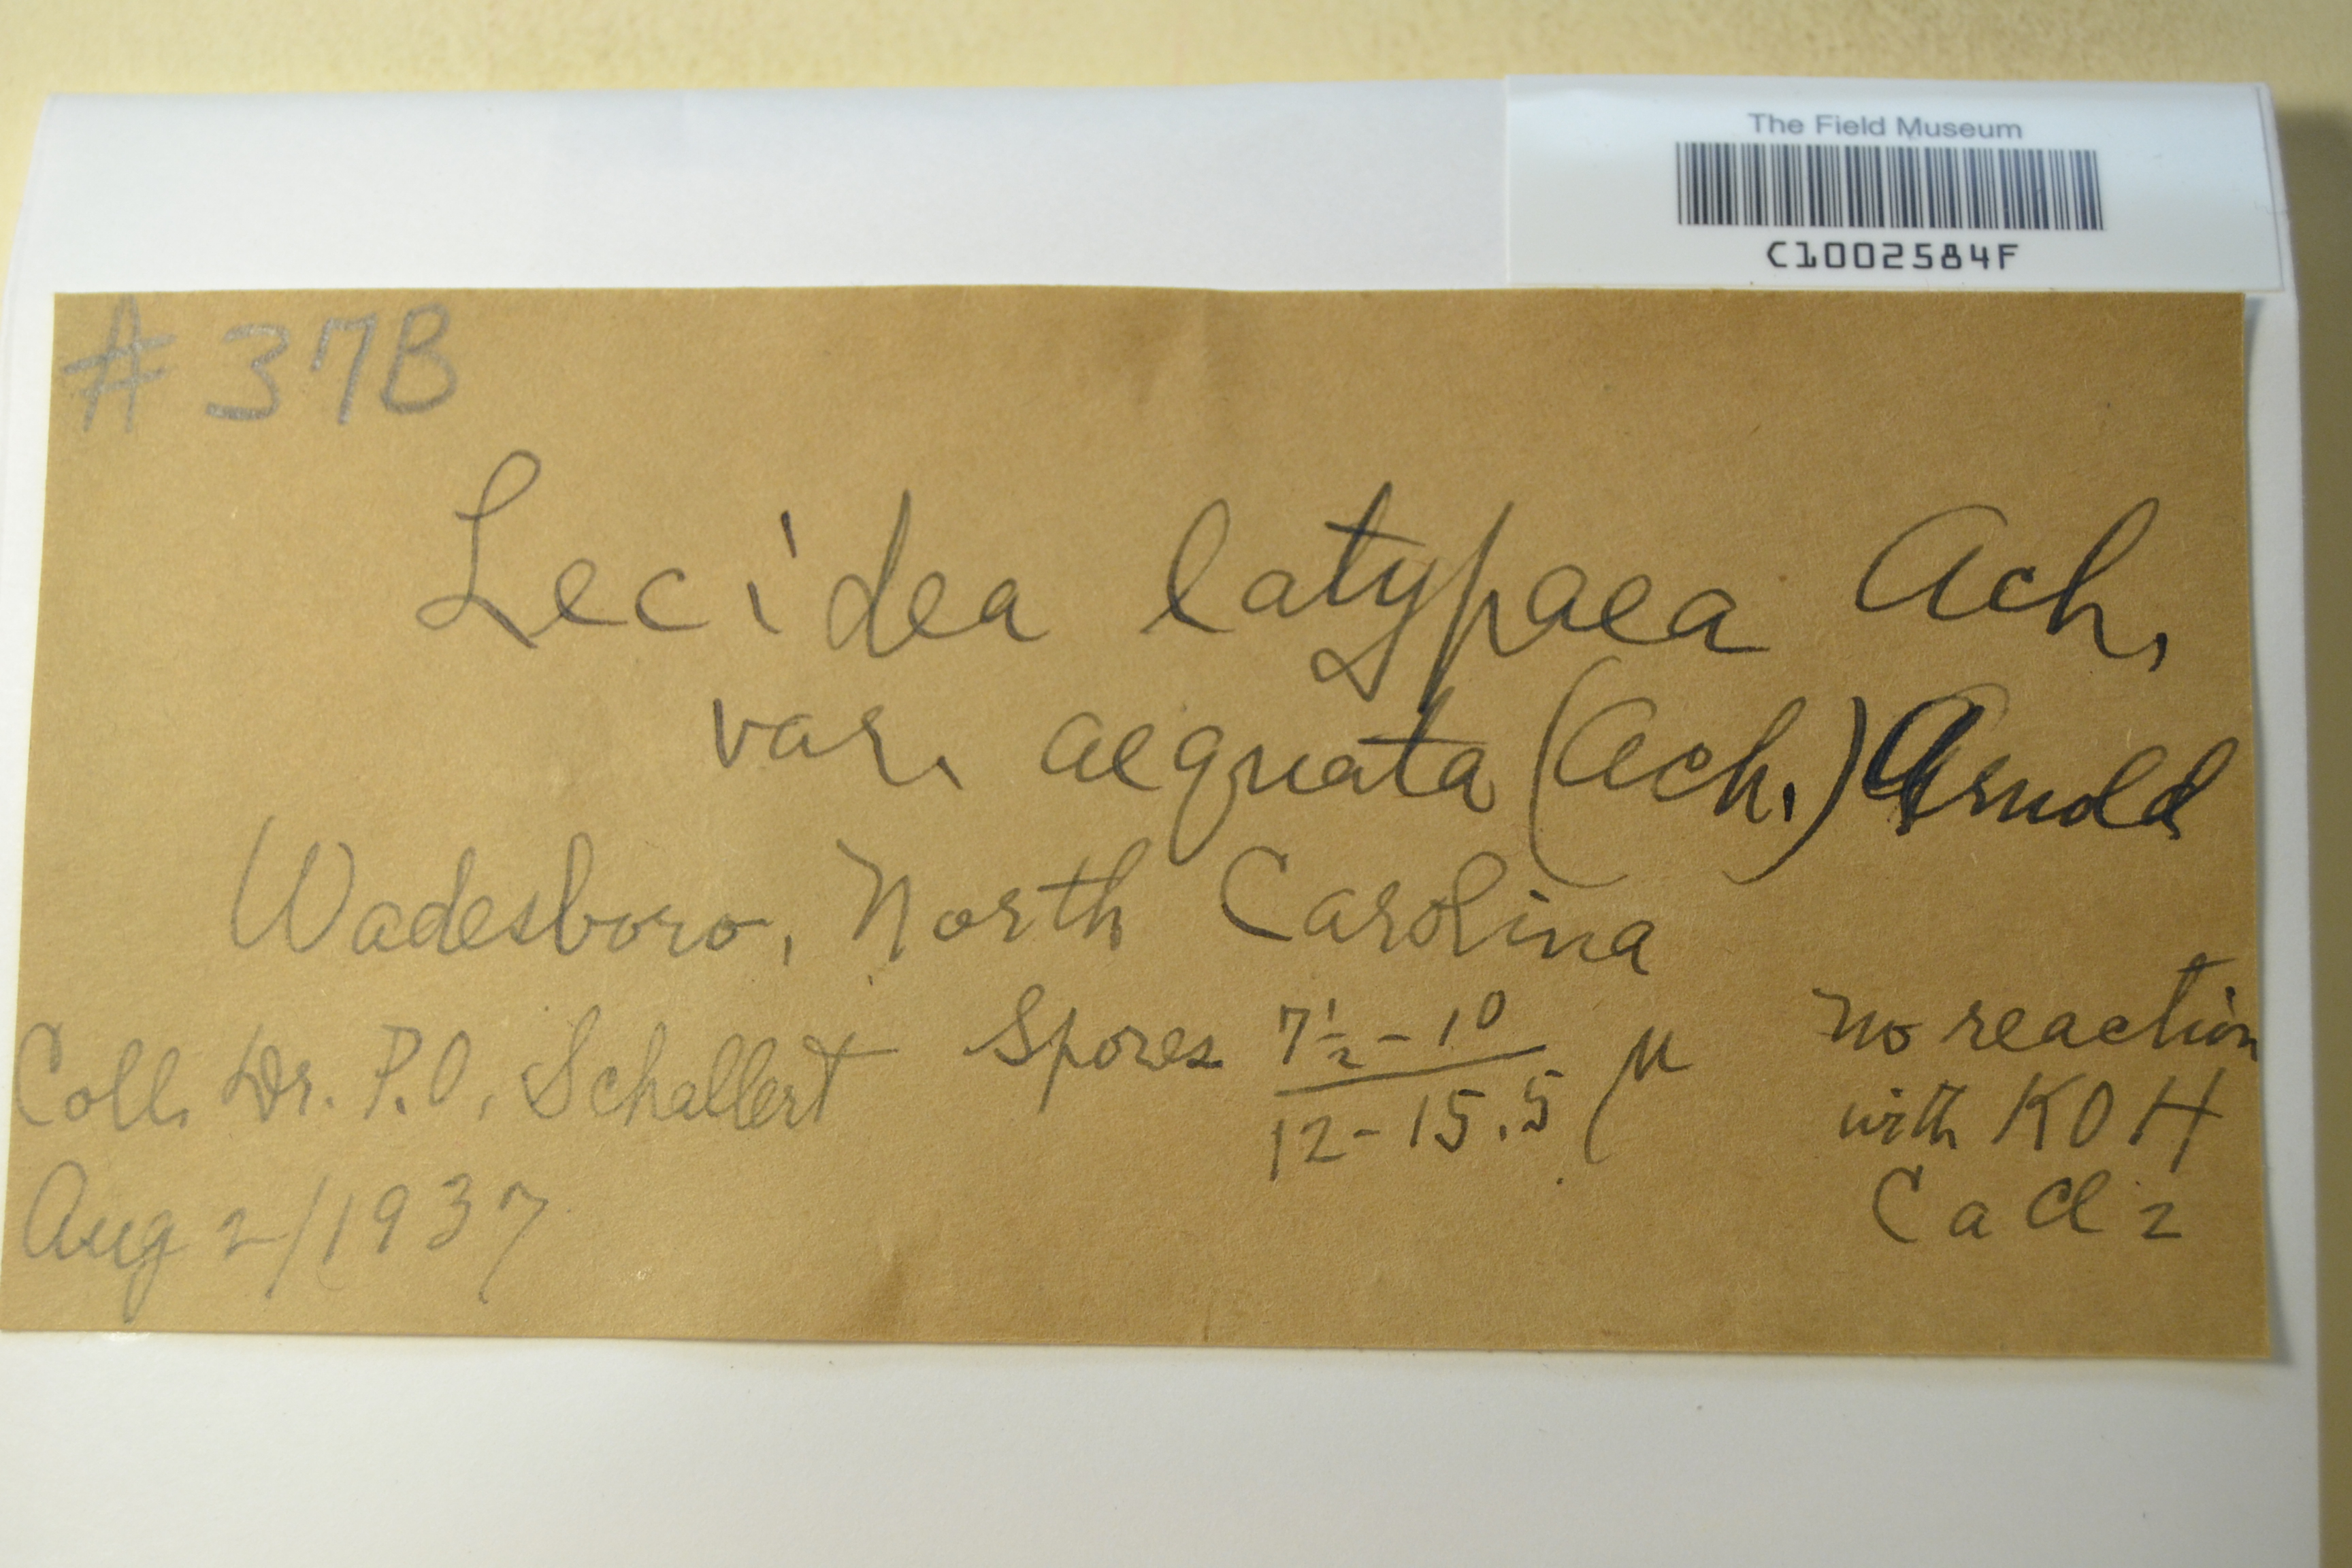 The Field Museum
C1002584F
# 37B
Lecidea latypaea Ach.
var. aequata (Ach.) Arnold
Wadesboro, North Carolina
Coll. Dr. P.O. Schallert
Aug 2/1937
Spores 7½-10
12-15.5 µ
No reaction
with KOH
CaCl2